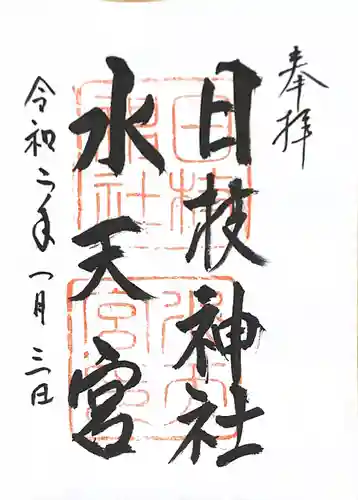 奉拝
日枝神社
水天宮
令和二年一月三日
日枝神社
水天宮